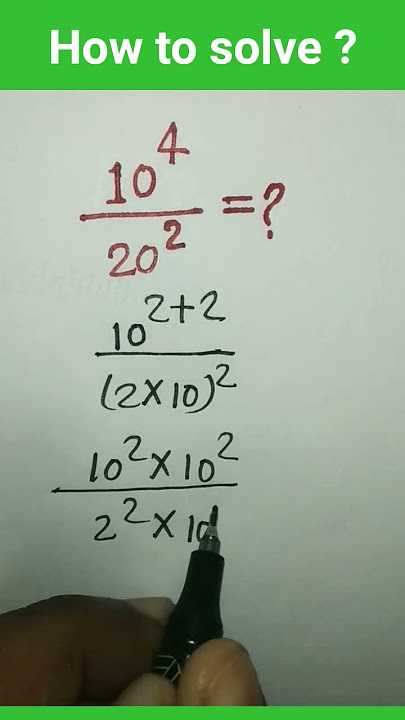 How to solve ?
10^4
20^2
=?
10^{2+2}
(2×10)^2
10^2×10^2
2^2×10